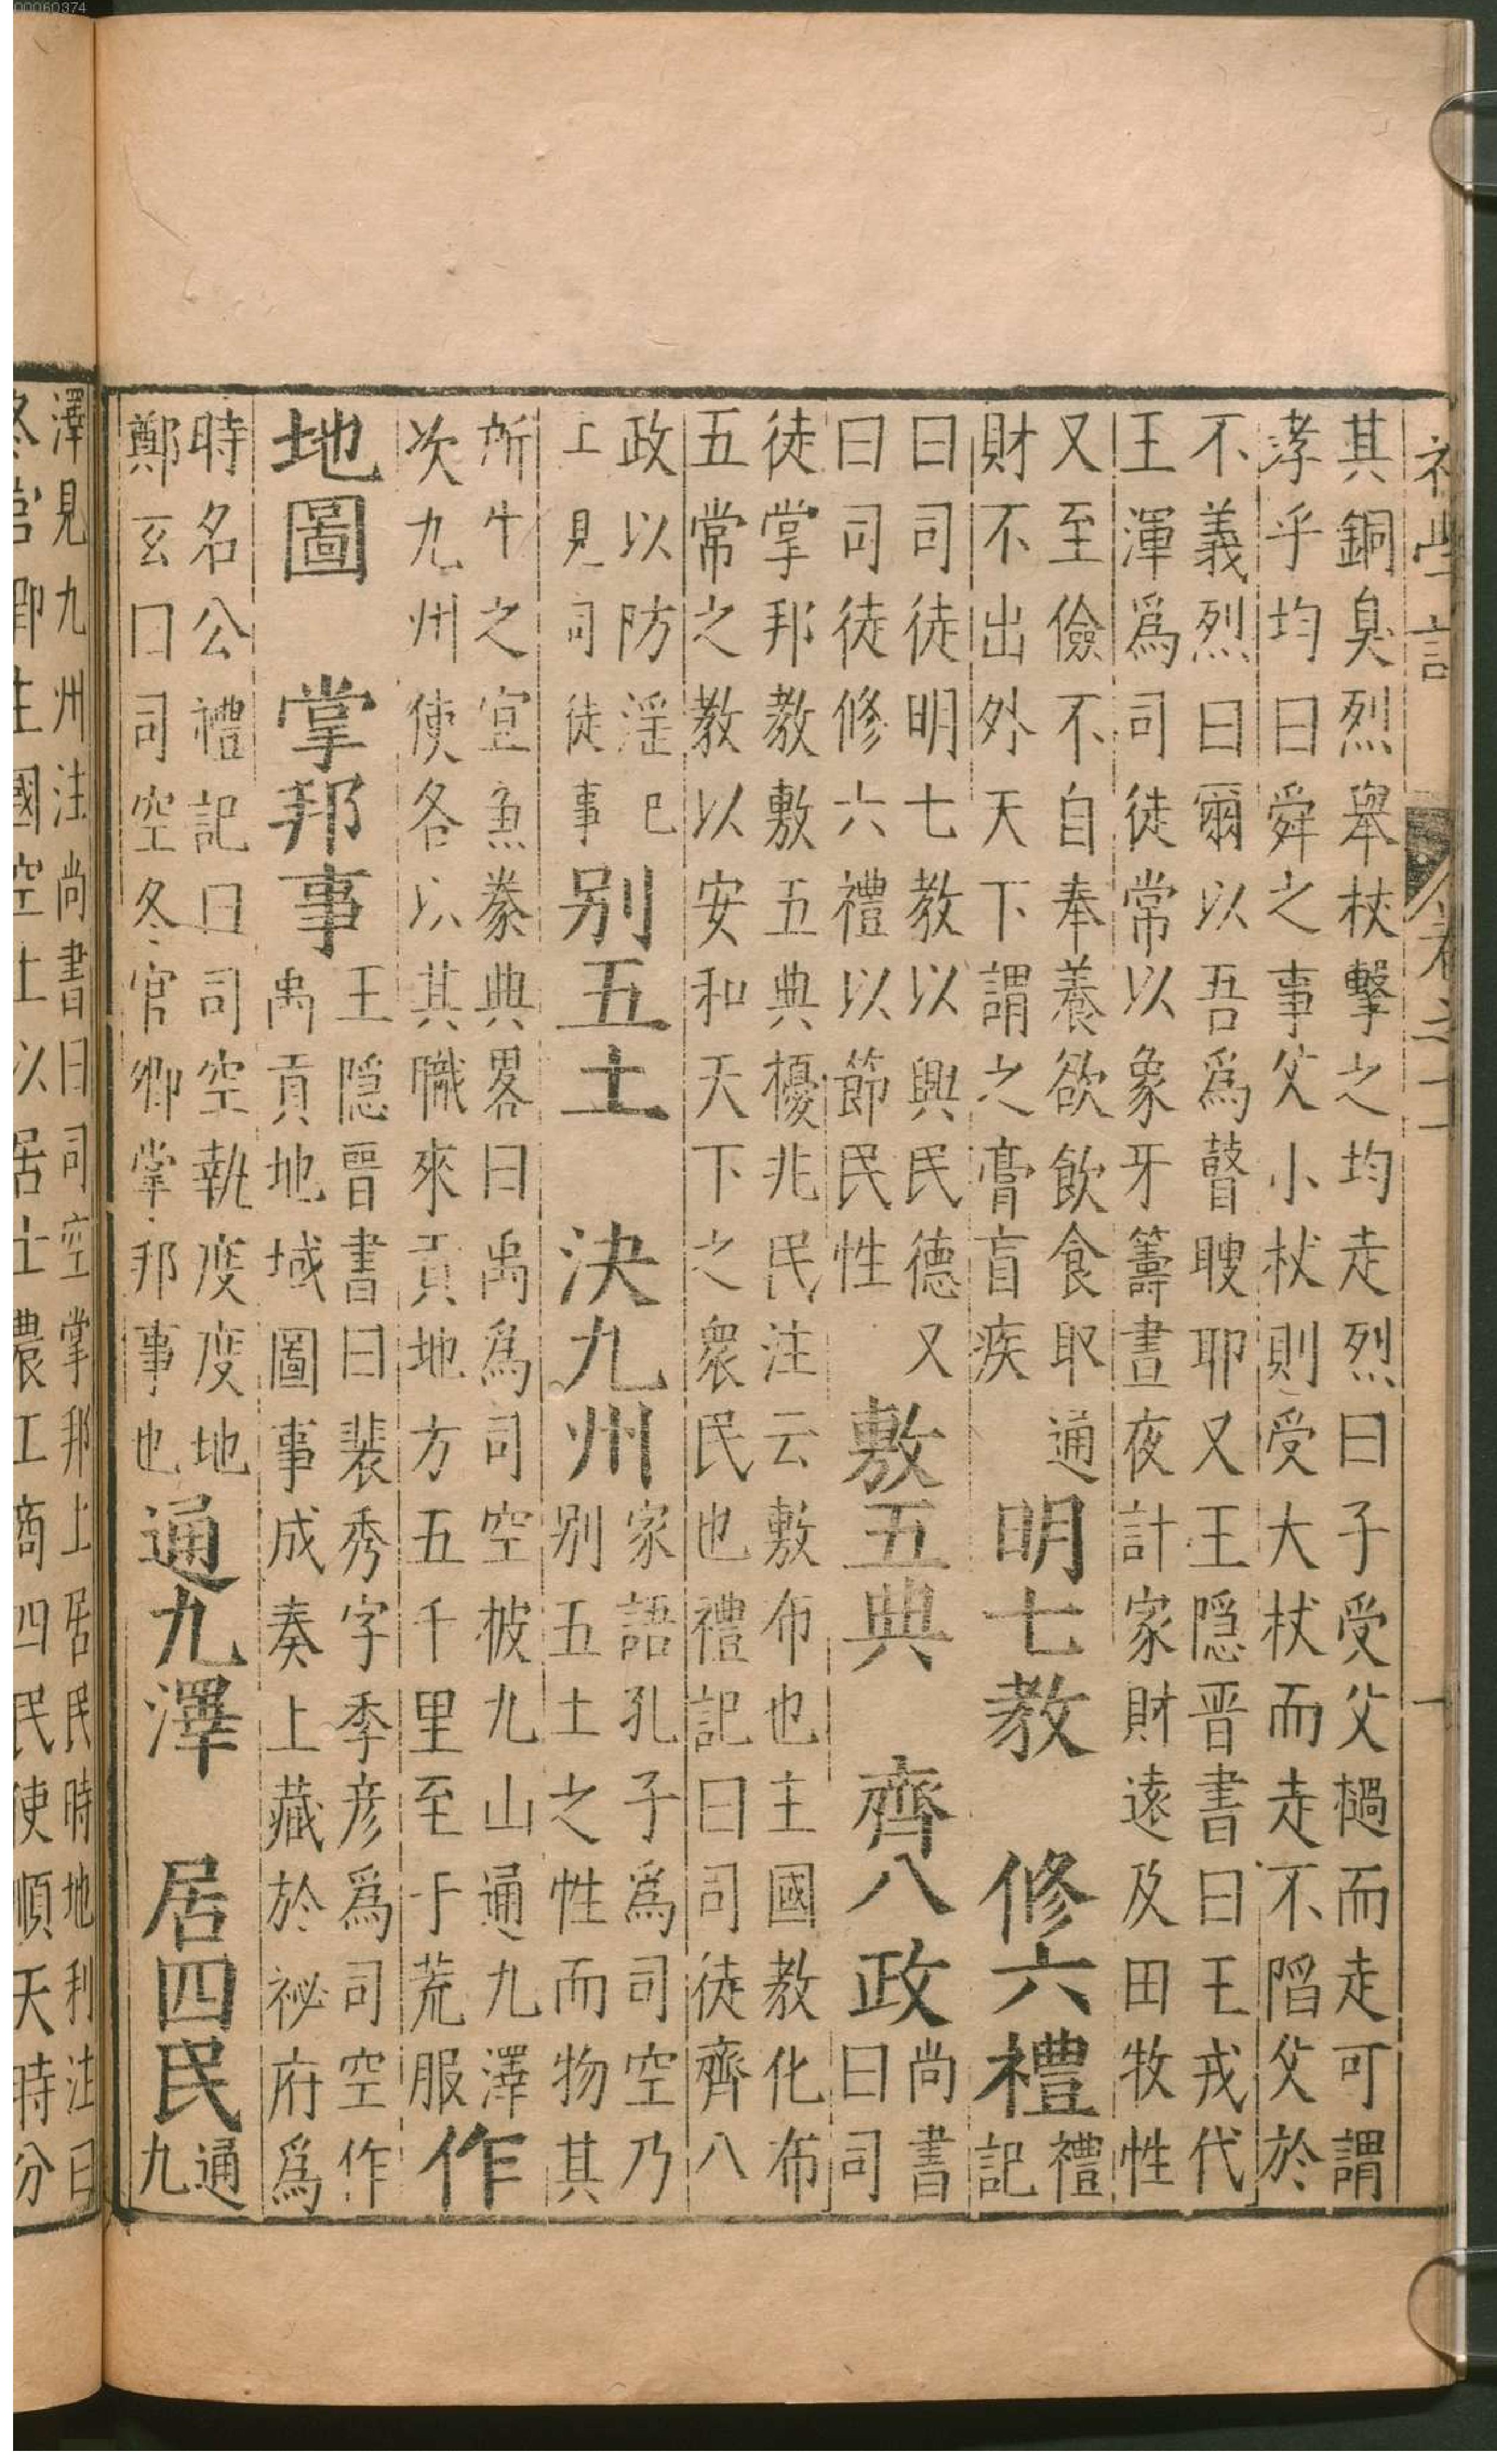 00060374
初學記 卷之十一
其銅臭烈舉杖擊之均走烈曰子受父檛而走可謂
孝乎均曰舜之事父小杖則受大杖而走不陷父於
不義烈曰爾以吾爲瞽瞍耶又王隱晋書曰王戎代
王渾爲司徒常以象牙籌晝夜計家財遠及田牧性
又至儉不自奉養欲飲食耶通
財不出外天下謂之膏盲疾
明七教 修六禮
禮
記
曰司徒明七教以興民德又
曰司徒修六禮以節民性
敷五典 齊八政
尚書
曰司
徒掌邦教敷五典擾兆民注云敷布也主國教化布
五常之教以安和天下之衆民也禮記曰司徒齊八
政以防淫已
上見司徒事
别五土 決九州
家語孔子爲司空乃
别五土之性而物其
所生之宜魚豢典畧曰禹爲司空披九山通九澤
次九州使各以其職來貢地方五千里至于荒服
作
地圖 掌邦事
王隠晉書曰裴秀字季彦爲司空作
禹貢地域圖事成奏上藏於祕府爲
時名公禮記曰司空執度度地
鄭玄曰司空冬官卿掌邦事也
通九澤 居四民
通
九
澤見九州注尚書曰司空掌邦上居民時地利注曰
冬官卿主國空土以居士農工商四民使順天時分